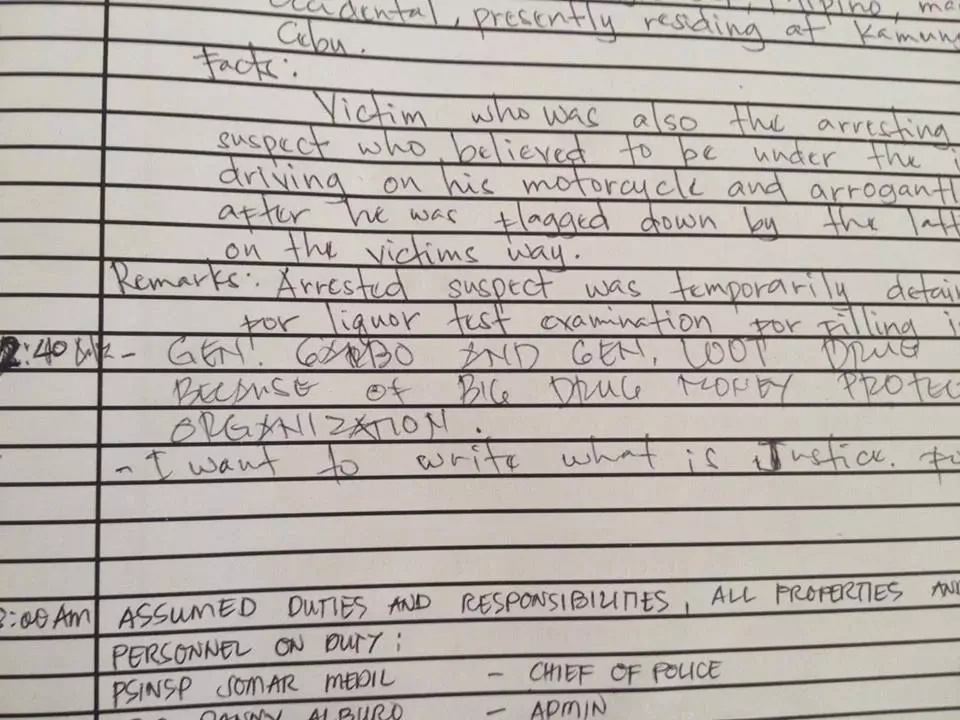 ccidental, presently residing at Kamung
Cebu.
Facts:
Victim who was also the arresting
suspect who believed to be under the i
driving on his motorcycle and arrogantl
after he was flagged down by the latt
on the victims way.
Remarks: Arrested suspect was temporarily detain
for liquor test examination for filling i
2:40 - GEN. GARBO AND GEN. LOOT DRUG
BECAUSE OF BIG DRUG MONEY PROTEC
ORGANIZATION.
- I want to write what is Justice.
8:00 AM ASSUMED DUTIES AND RESPONSIBILITIES, ALL PROPERTIES AND
PERSONNEL ON DUTY:
PSINSP JOMAR MEDIL - CHIEF OF POLICE
ALBURO - ADMIN